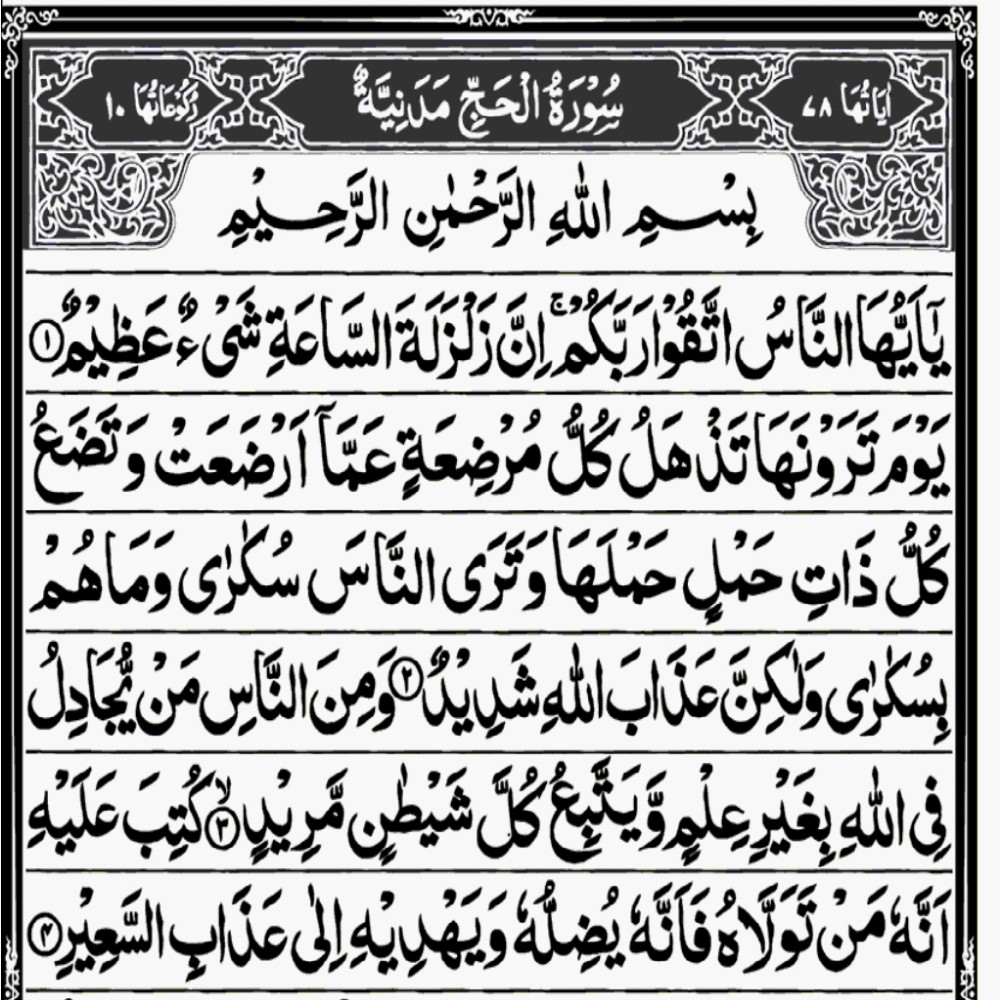 اٰيَاتُهَا ٧٨ سُوْرَةُ الْحَجِّ مَدَنِيَّةٌ رُكُوْعَاتُهَا ١٠
بِسْمِ اللّٰهِ الرَّحْمٰنِ الرَّحِيْمِ
يٰۤاَيُّهَا النَّاسُ اتَّقُوْا رَبَّكُمْ ۚ اِنَّ زَلْزَلَةَ السَّاعَةِ شَىْءٌ عَظِيْمٌ ١
يَوْمَ تَرَوْنَهَا تَذْهَلُ كُلُّ مُرْضِعَةٍ عَمَّاۤ اَرْضَعَتْ وَتَضَعُ
كُلُّ ذَاتِ حَمْلٍ حَمْلَهَا وَتَرَى النَّاسَ سُكٰرٰى وَمَا هُمْ
بِسُكٰرٰى وَلٰكِنَّ عَذَابَ اللّٰهِ شَدِيْدٌ ٢ وَمِنَ النَّاسِ مَنْ يُّجَادِلُ
فِى اللّٰهِ بِغَيْرِ عِلْمٍ وَّيَتَّبِعُ كُلَّ شَيْطٰنٍ مَّرِيْدٍ ۙ ٣ كُتِبَ عَلَيْهِ
اَنَّهٗ مَنْ تَوَلَّاهُ فَاَنَّهٗ يُضِلُّهٗ وَيَهْدِيْهِ اِلٰى عَذَابِ السَّعِيْرِ ٤